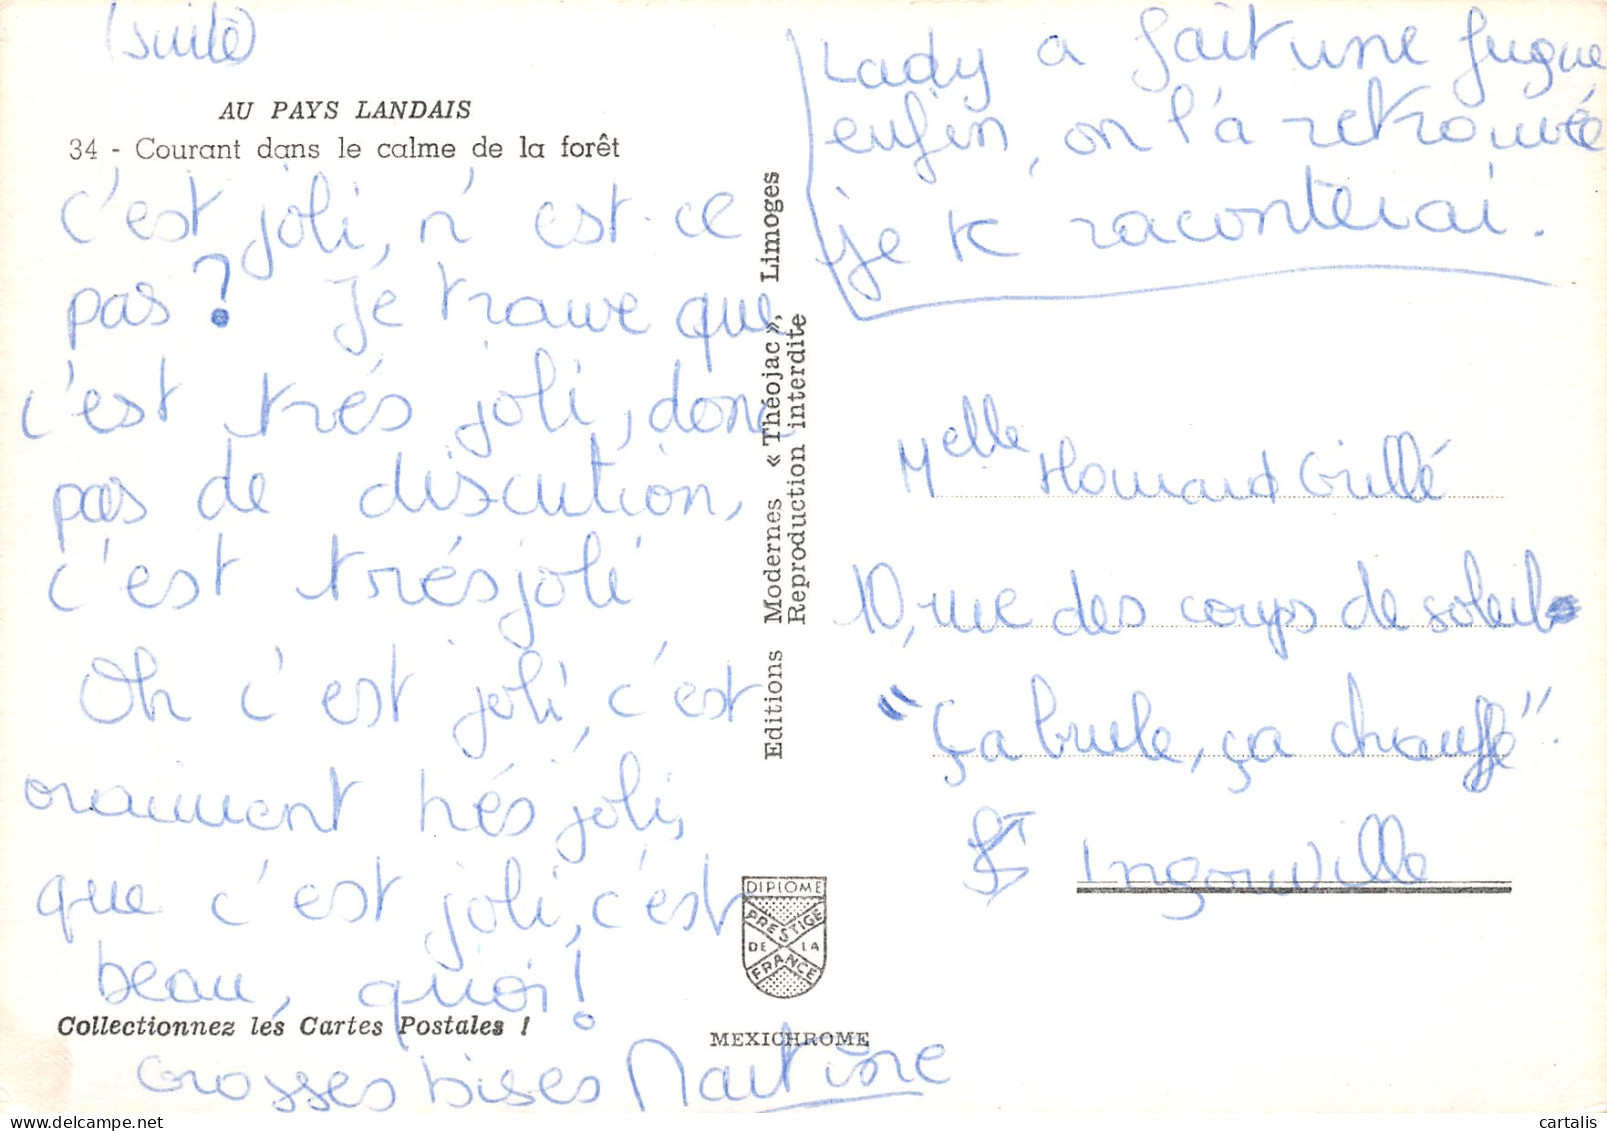 (suite)
AU PAYS LANDAIS
34 - Courant dans le calme de la forêt
c'est joli, n'est-ce
pas ? Je trouve que
c'est trés joli, donc
pas de discution,
c'est trés joli
Oh c'est joli, c'est
vraiment trés joli,
que c'est joli, c'est
beau, quoi !
Collectionnez les Cartes Postales !
Grosses bises Martine
Editions Modernes « Théojac », Limoges
Reproduction interdite
DIPLOME
PRESTIGE
DE LA
FRANCE
MEXICHROME
Lady a fait une fugue
enfin, on l'a retrouvée
je te raconterai.
Melle Homard Grillé
10, rue des coups de soleil
"ça brule, ça chauffe".
St Ingouville
cartalis